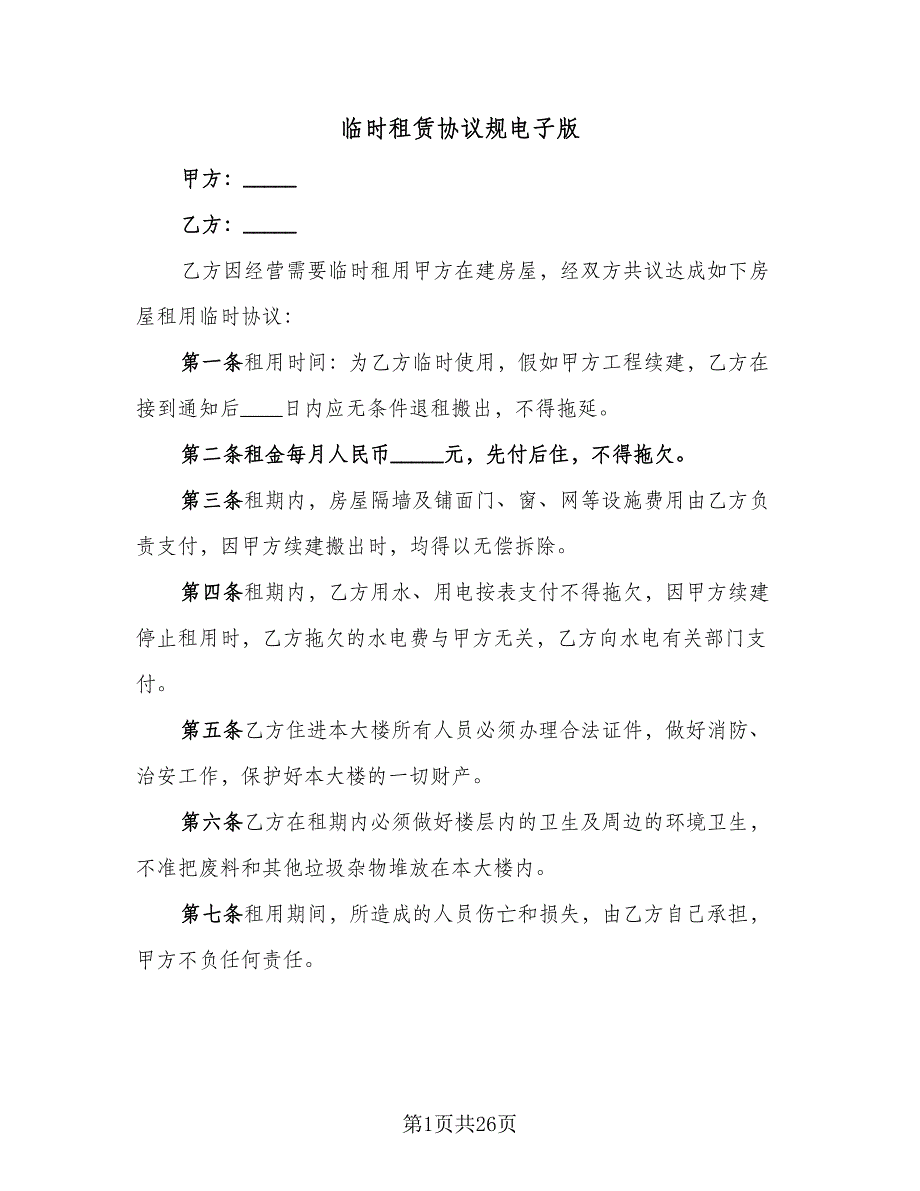 临时租赁协议规电子版
甲方：_____
乙方：_____
乙方因经营需要临时租用甲方在建房屋，经双方共议达成如下房
屋租用临时协议：
第一条租用时间：为乙方临时使用，假如甲方工程续建，乙方在
接到通知后____日内应无条件退租搬出，不得拖延。
第二条租金每月人民币_____元，先付后住，不得拖欠。
第三条租期内，房屋隔墙及铺面门、窗、网等设施费用由乙方负
责支付，因甲方续建搬出时，均得以无偿拆除。
第四条租期内，乙方用水、用电按表支付不得拖欠，因甲方续建
停止租用时，乙方拖欠的水电费与甲方无关，乙方向水电有关部门支
付。
第五条乙方住进本大楼所有人员必须办理合法证件，做好消防、
治安工作，保护好本大楼的一切财产。
第六条乙方在租期内必须做好楼层内的卫生及周边的环境卫生，
不准把废料和其他垃圾杂物堆放在本大楼内。
第七条租用期间，所造成的人员伤亡和损失，由乙方自己承担，
甲方不负任何责任。
第1页共26页